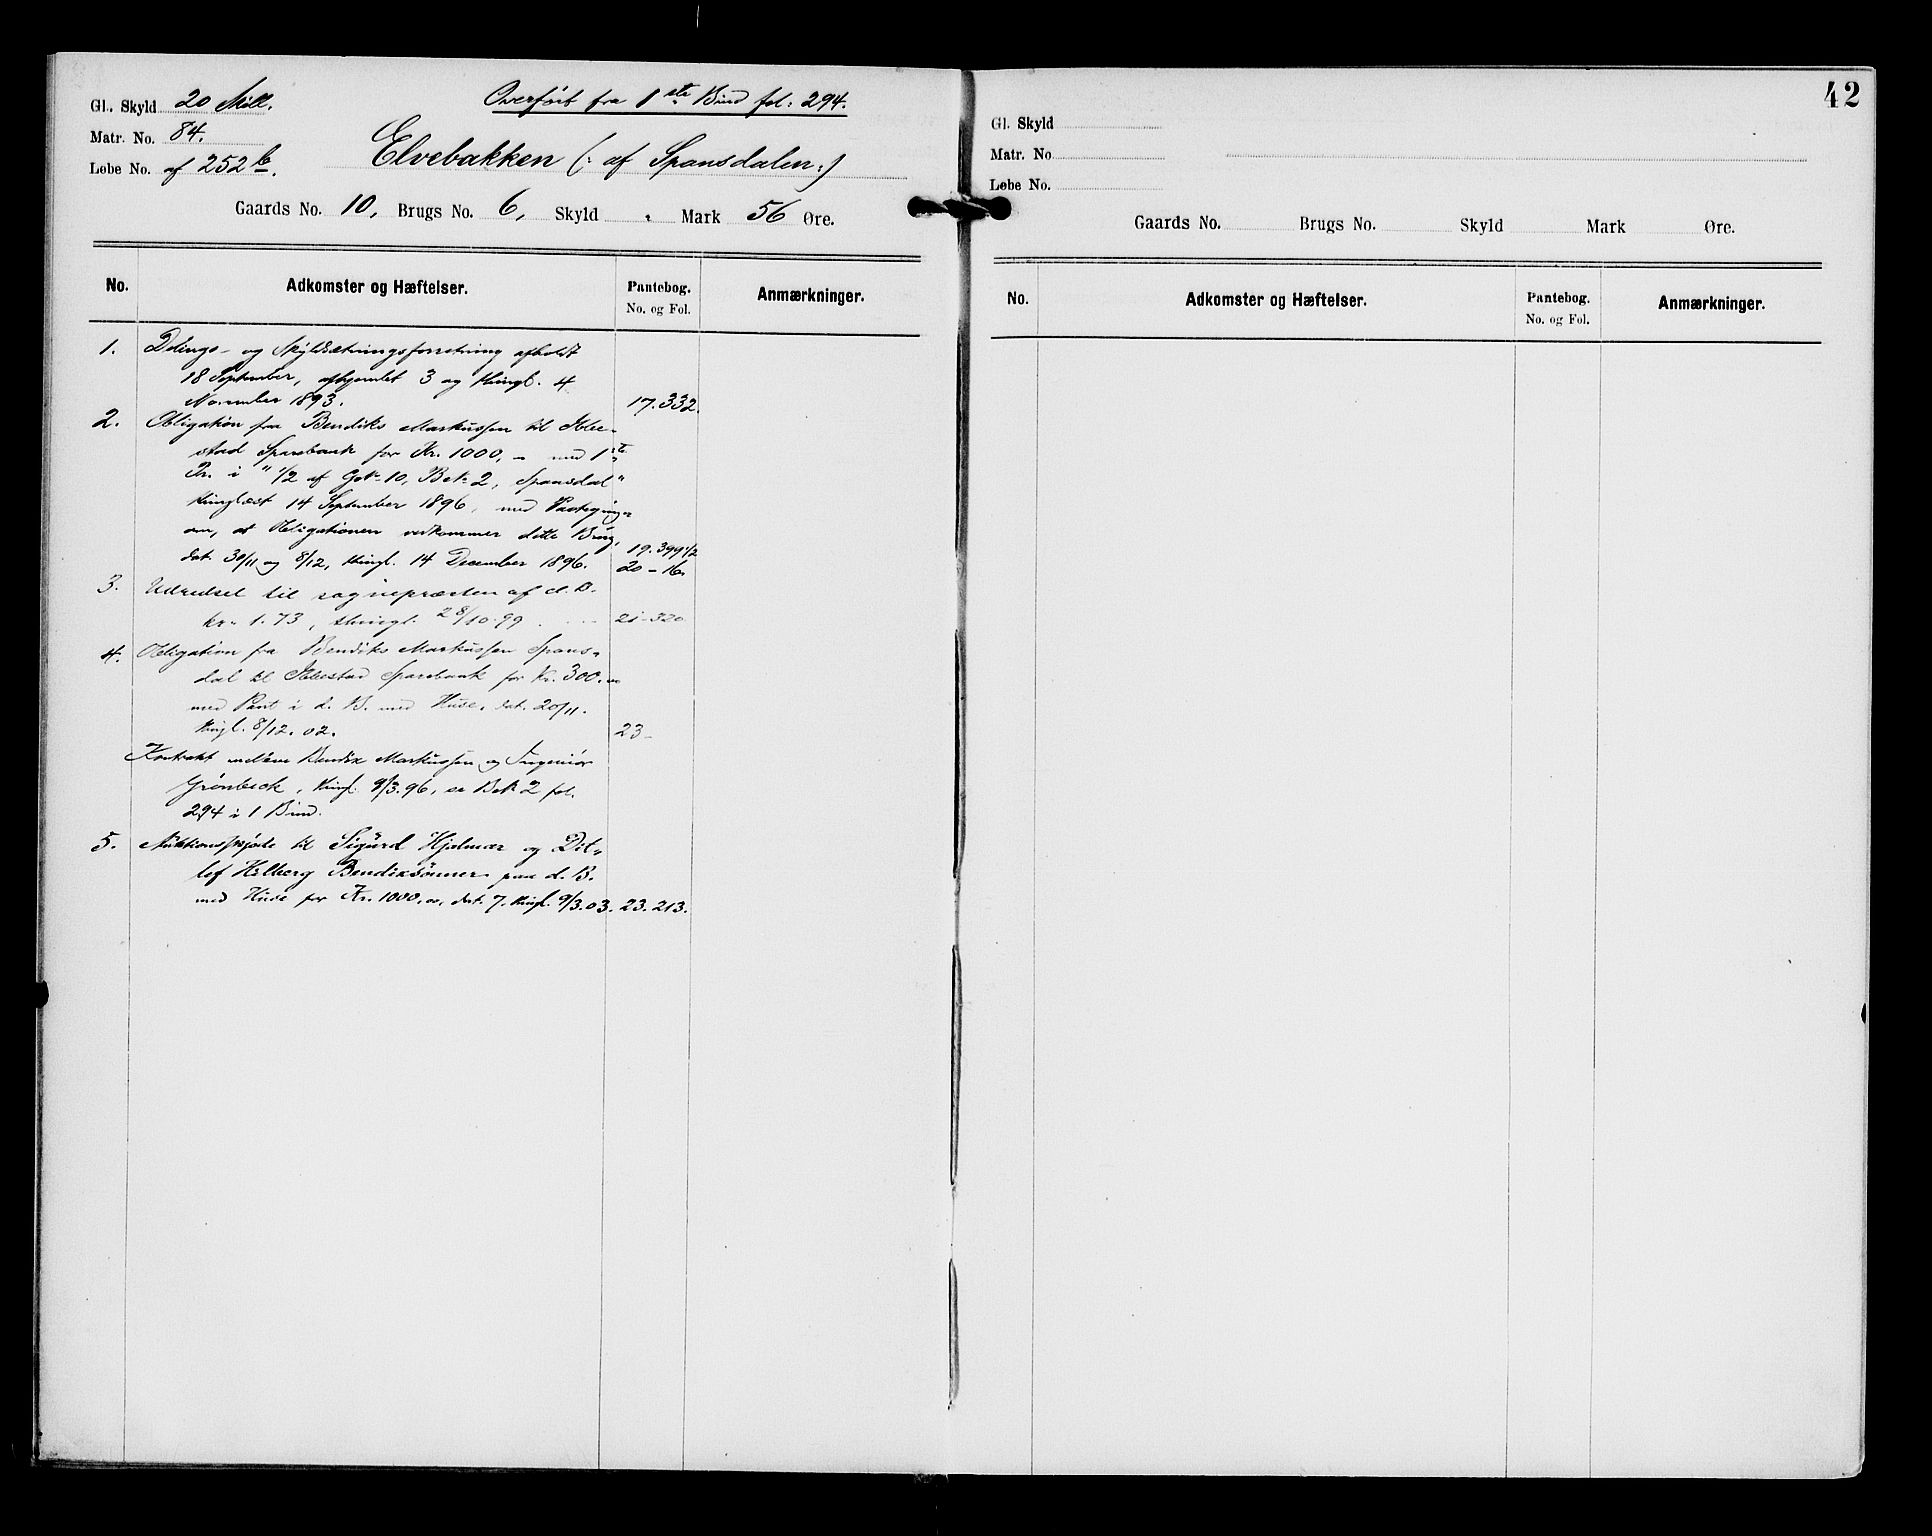 Gl. Skyld 20 Skill.
Overført fra 1ste Bind fol: 294.
Matr. No. 84.
Elvebakken (: af Spansdalen:)
Løbe No. af 252 b.
Gaards No. 10, Brugs No. 6, Skyld . Mark 56 Øre.
No. Adkomster og Hæftelser. Pantebog. No. og Fol. Anmærkninger.
1. Delings- og Skyldsætningsforretning afholdt
18 September, afhjemlet 3 og thingl. 4
November 1893. 17.332.
2. Obligation fra Bendiks Markussen til Ibbe-
stad Sparebank for Kr. 1000,- med 1ste
Pr. i "1/2 af Gok 10, Bek 2, Spansdal"
thinglæst 14 September 1896, med Paategning
om, at Obligationen vedkommer dette Brug,
dat. 30/11 og 8/12, thingl. 14 December 1896. 19.399 1/2
20-16.
3. Udredsel til sognepræsten af d. B.
kr. 1.73, thingl. 28/10.99. 21-320
4. Obligation fra Bendiks Markussen Spans-
dal til Ibbestad Sparebank for Kr. 300.
med Pant i d. B. med Huse, dat. 20/11.
thgl. 8/12.02. 23-
Kontrakt mellem Bendix Markussen og Ingeniør
Grønbeck, thingl. 9/3.96, se Bek 2 fol.
294 i 1 Bind.
5. Auktionsskjøde til Sigurd Hjalmar og Dit-
lef Hilberg Bendiksønner paa d. B.
med Huse for Kr. 1000,00, dat. 7. thingl. 9/3.03. 23.213.
42
Gl. Skyld
Matr. No
Løbe No.
Gaards No. Brugs No. Skyld Mark Øre.
No. Adkomster og Hæftelser. Pantebog. No. og Fol. Anmærkninger.